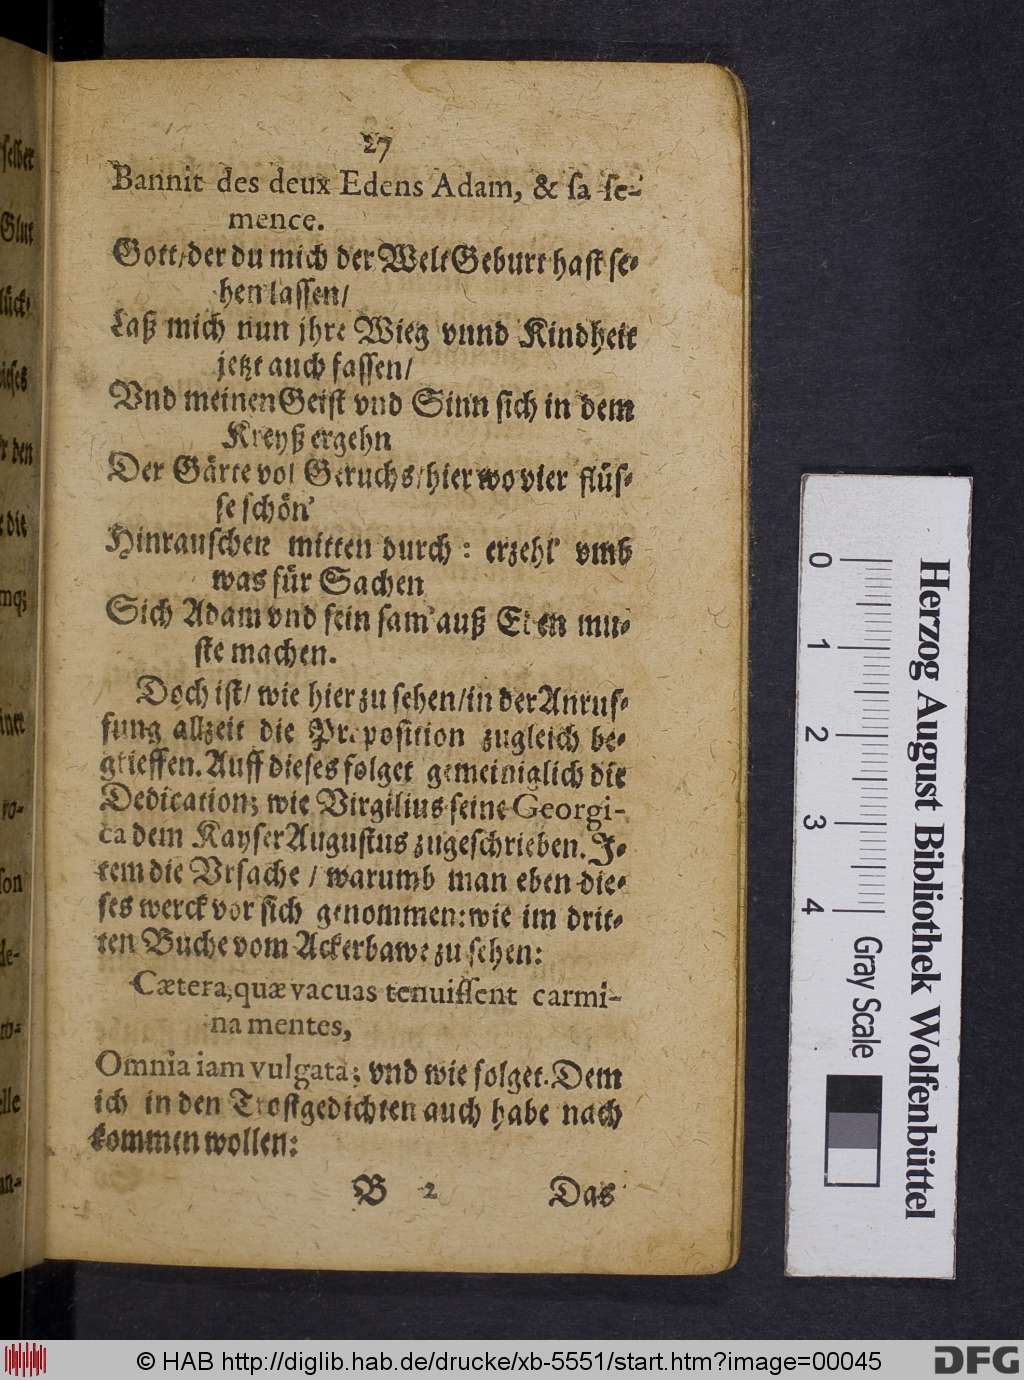 27
Bannit des deux Edens Adam, & ſa ſe-
mence.
Gott/der du mich der Welt Geburt haſt ſe-
hen laſſen/
Laß mich nun jhre Wieg vnnd Kindheit
jetzt auch faſſen/
Vnd meinen Geiſt vnd Sinn ſich in dem
Kreyß ergehn
Der Gärte vol Geruchs/hier wo vier flüſ-
ſe ſchön'
Hinrauſchen mitten durch: erzehl' vmb
was für Sachen
Sich Adam vnd ſein ſam' auß Eden mu-
ſte machen.
Doch iſt/ wie hier zu ſehen/in der Anruf-
fung allzeit die Propoſition zugleich be-
grieffen. Auff dieſes folget gemeiniglich die
Dedication; wie Virgilius ſeine Georgi-
ca dem Kayſer Auguſtus zugeſchrieben. J-
tem die Vrſache / warumb man eben die-
ſes werck vor ſich genommen: wie im drit-
ten Buche vom Ackerbawe zu ſehen:
Cætera, quæ vacuas tenuiſſent carmi-
na mentes,
Omnia iam vulgata; vnd wie folget. Dem
ich in den Troſtgedichten auch habe nach
kommen wollen:
B 2 Das
ſelber
Glut
den
die
ſon
de-
Herzog August Bibliothek Wolfenbüttel
0 1 2 3 4
Gray Scale
© HAB http://diglib.hab.de/drucke/xb-5551/start.htm?image=00045
DFG